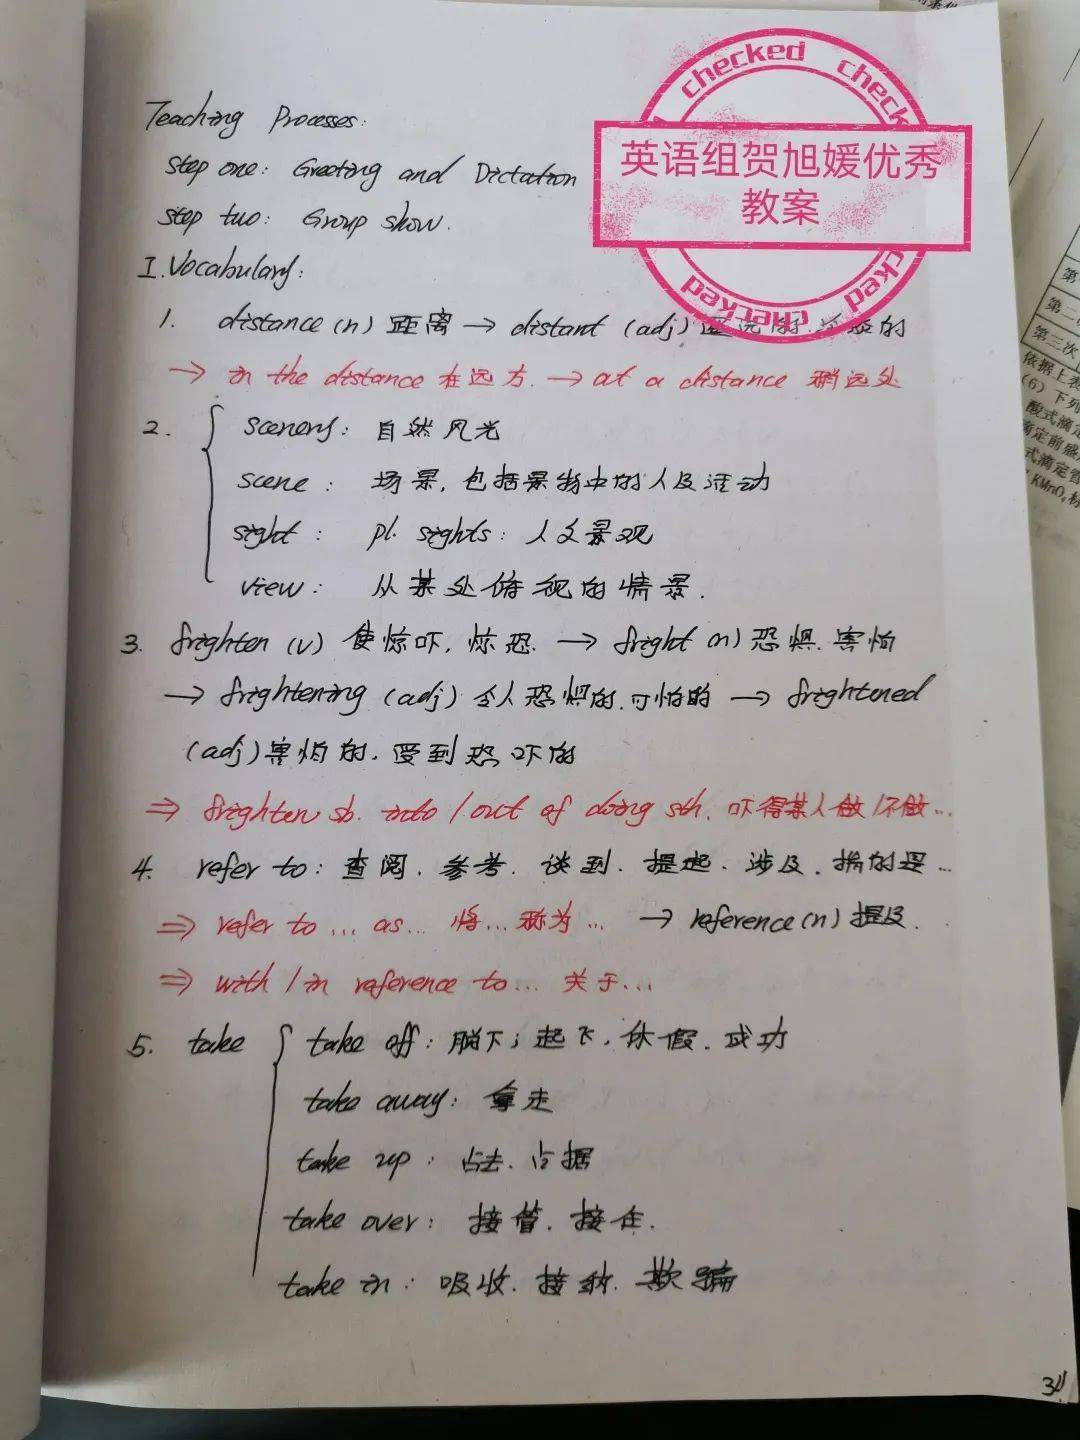 Teaching Processes:
step one: Greeting and Dictation
step two: Group show.
I. Vocabulary:
1. distance (n) 距离 → distant (adj) 的
→ in the distance 在远方. → at a distance 稍远处
2. scenery: 自然风光
scene: 场景, 包括景物中的人及活动
sight: pl. sights: 人文景观
view: 从某处俯视的情景.
3. frighten (v) 使惊吓, 惊恐. → fright (n) 恐惧. 害怕
→ frightening (adj) 令人恐惧的. 可怕的 → frightened
(adj) 害怕的. 受到恐吓的
⇒ frighten sb. into / out of doing sth. 吓得某人做/不做...
4. refer to: 查阅. 参考. 谈到. 提起. 涉及. 指的是...
⇒ refer to ... as... 将...称为... → reference (n) 提及.
⇒ with / in reference to... 关于...
5. take take off: 脱下; 起飞. 休假. 成功
take away: 拿走
take up: 占去. 占据
take over: 接管. 接任.
take in: 吸收. 接纳. 欺骗
checked
check
checked
checked
英语组贺旭媛优秀
教案
第
第二
第三次
依据上表
(6) 下列
酸式滴定
滴定前盛
式滴定管
KMnO₄标